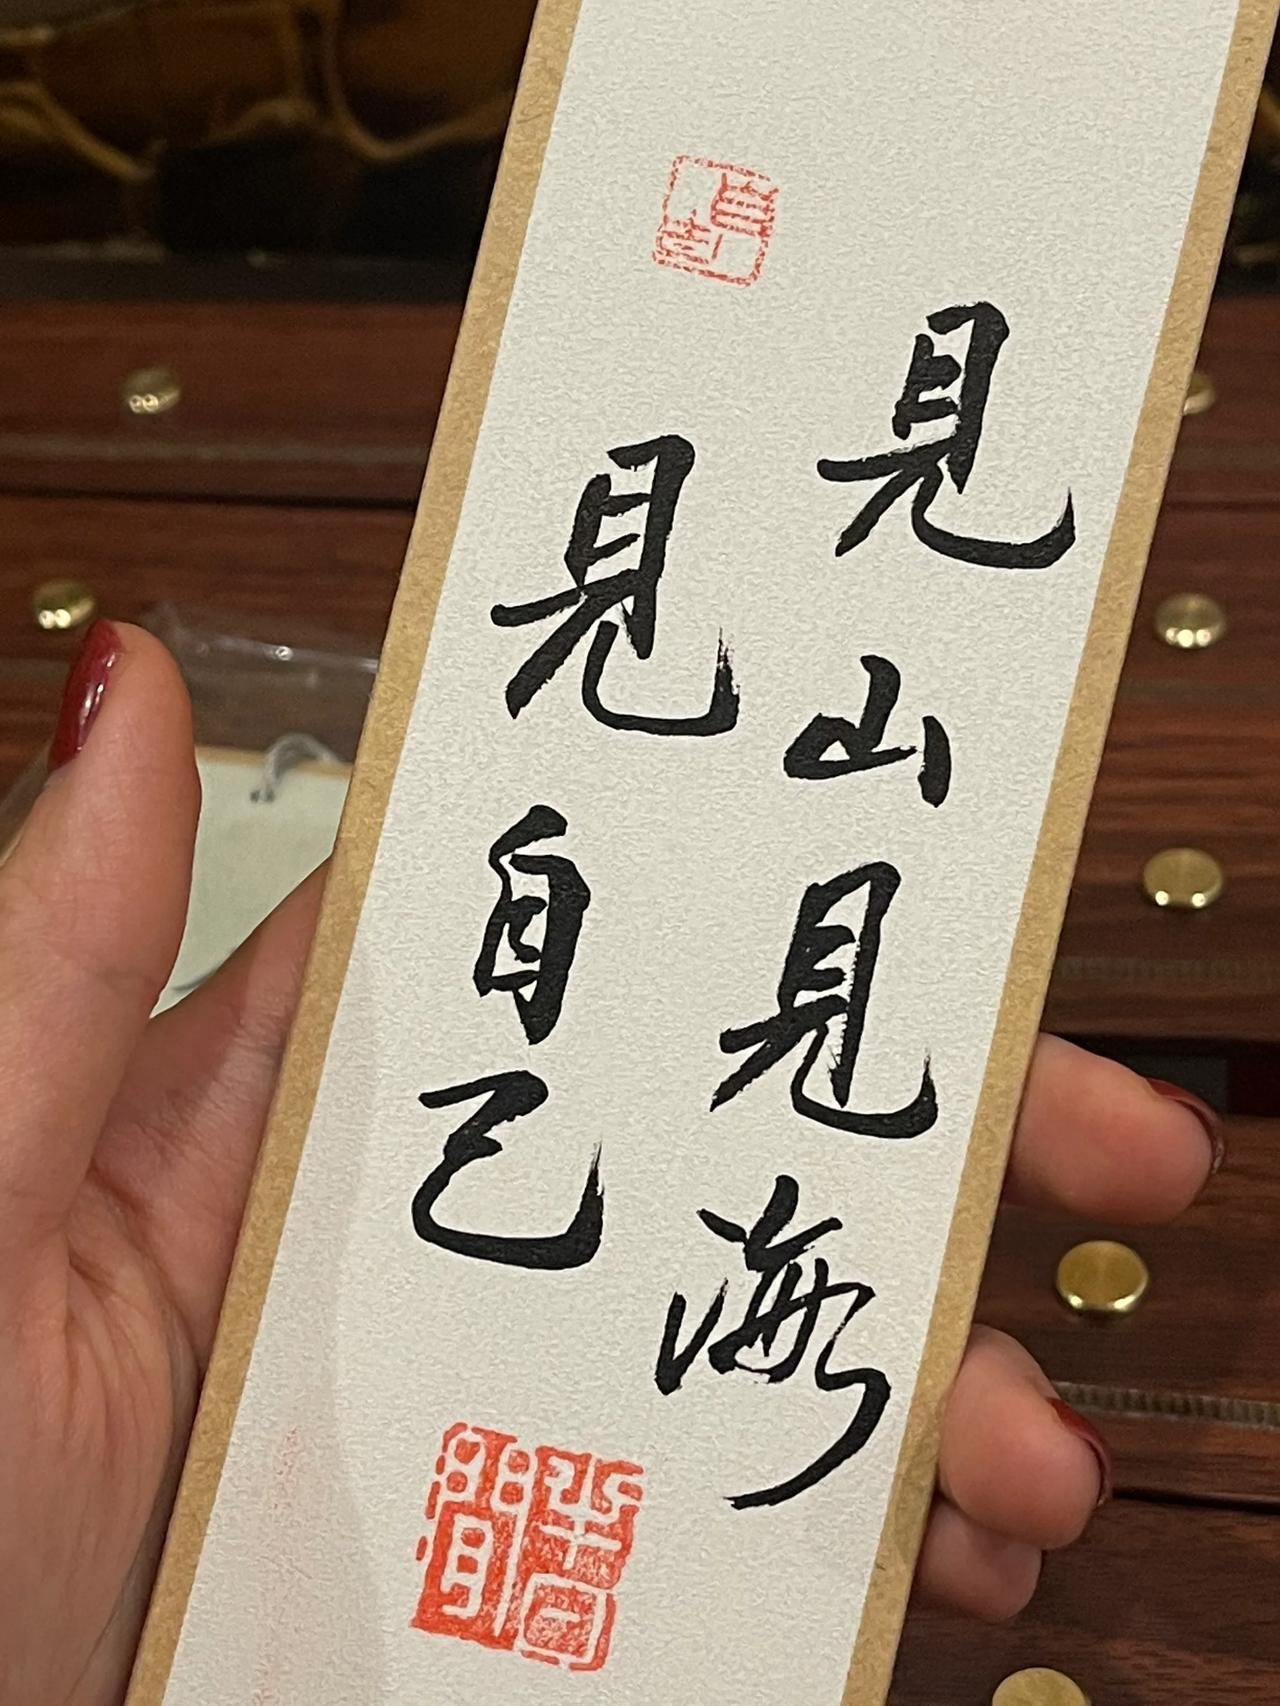 見山見海
見自己